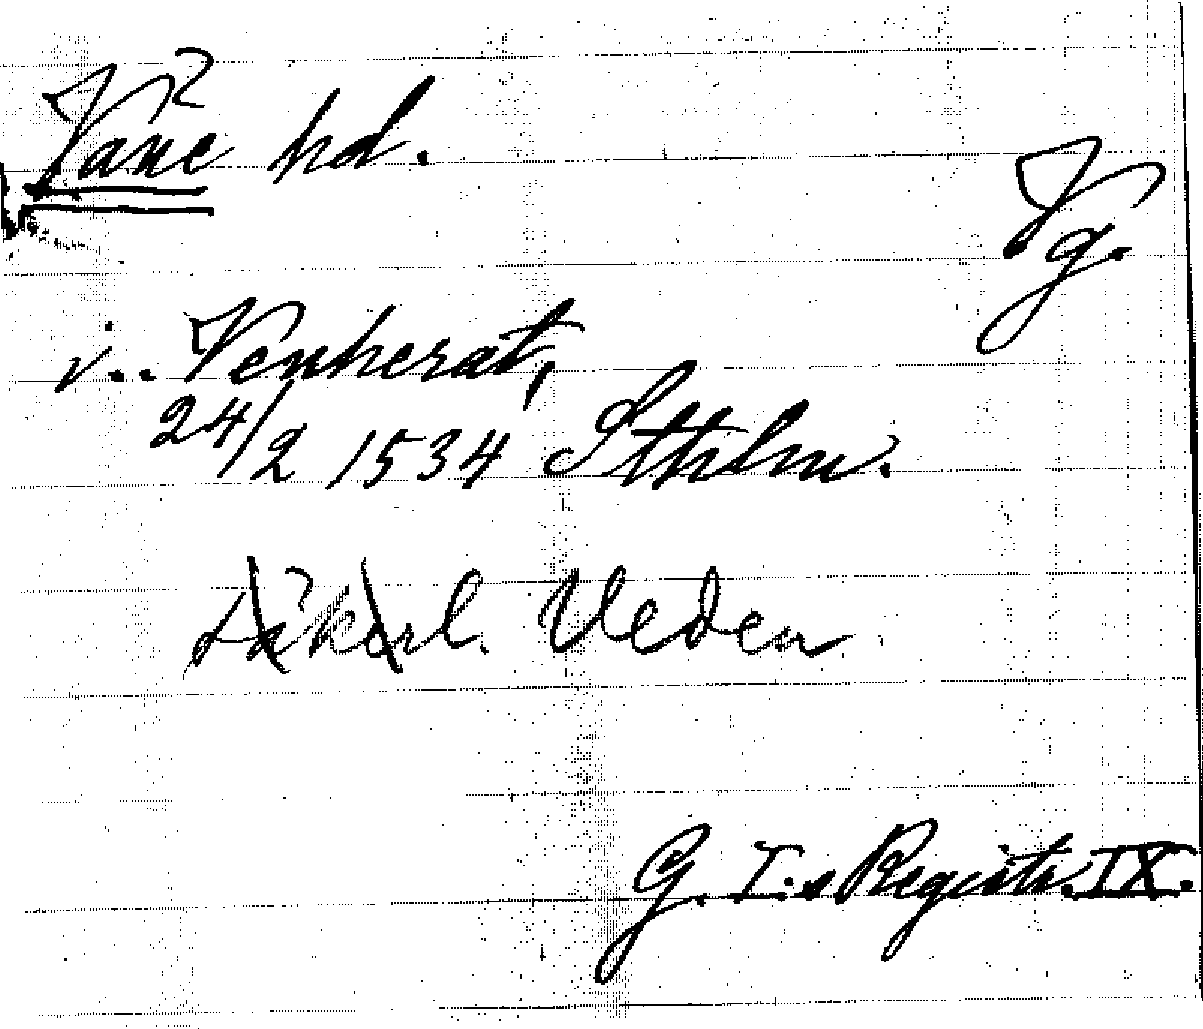 ?
Vane hd.
Vg.
i.. Venherat,
24/2 1534 Sthlm.
Veden
G. I:s Registr. IX.